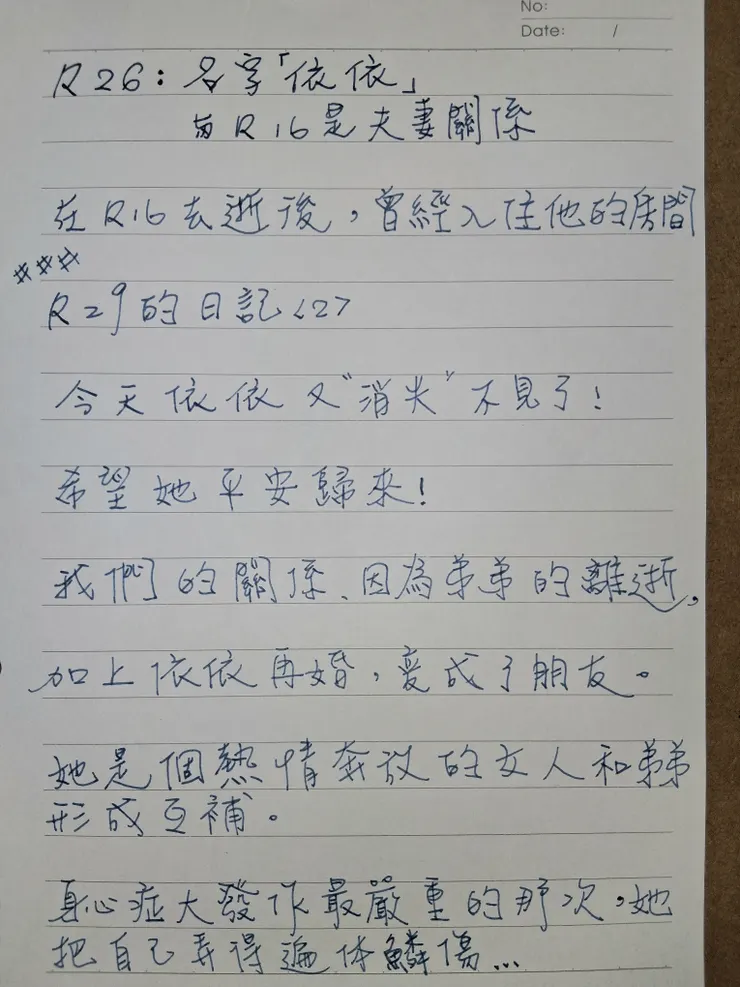 No:
Date: /
R26:名字「依依」
与R16是夫妻關係
在R16去逝後,曾經入住他的房間
###
R29的日記<27
今天依依又"消失"不見了!
希望她平安歸來!
我們的關係、因為弟弟的離逝,
加上依依再婚,變成了朋友。
她是個熱情奔放的女人和弟弟
形成互補。
身心症大發作最嚴重的那次,她
把自己弄得遍体鱗傷...